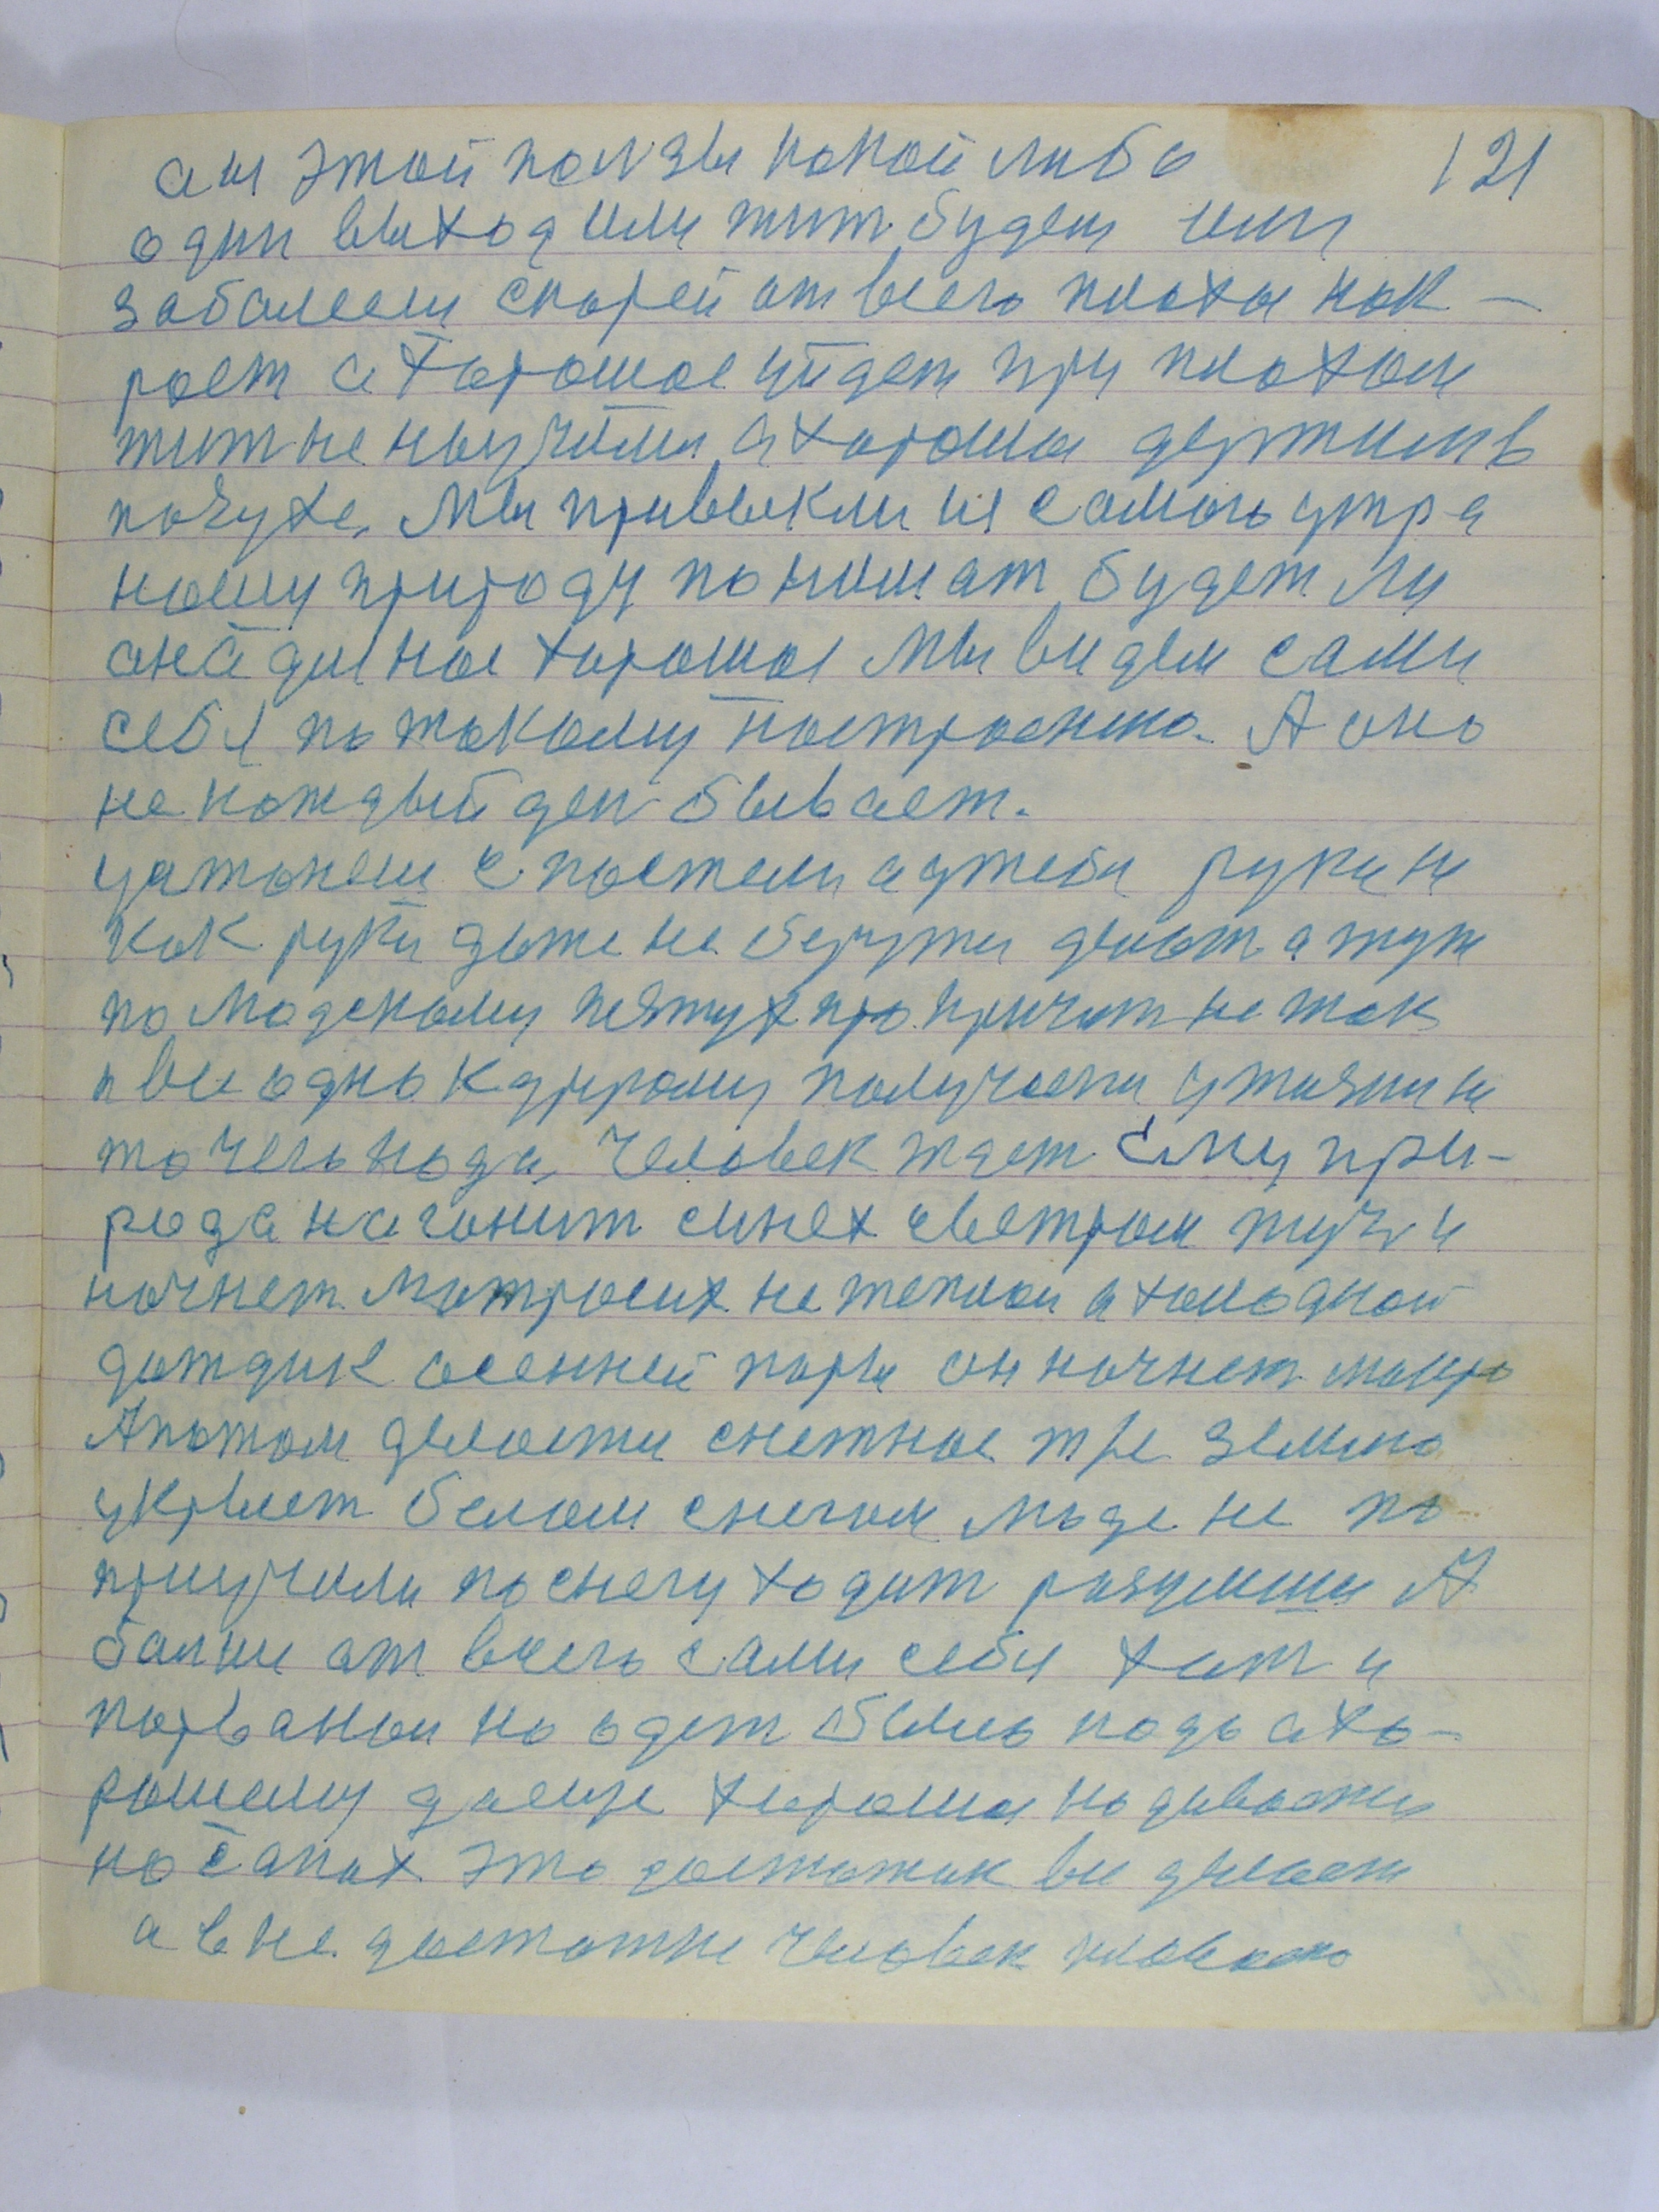 121
аш этой ползы какой либо
один выход или жит будем или
заболеем скорей от всего плохое нак-
роет а хорошое уйдет при плохом
жит не научили а хорошое держим в
почухе. Мы привыкли из самого утра
нашу природу понимат будет ли
она для нас хорошоя Мы видем сами
себя по такому настроению. А оно
не каждый ден бывает.
устанеш с постели а у тебя руки не
как руки даже не берутся делат а тут
по людскому петух прокричит не так
и все одно к другому получаеш у жизни не
то чего нада, Человек ждет Ему при-
рода нагонит синех светром туч и
начнет матросит не теплой а холодной
дождик осенней поры он начнет мокро
А потом делается снежное тре землю
укрывает белом снегом люде не по
приучили по снегу ходит разумши А
болше от всего сами себя хот и
порваной но одет было надо а хо-
рошему даеще хорошое надивается
на сапах это достаток все делает
а в не достатке человек плоского